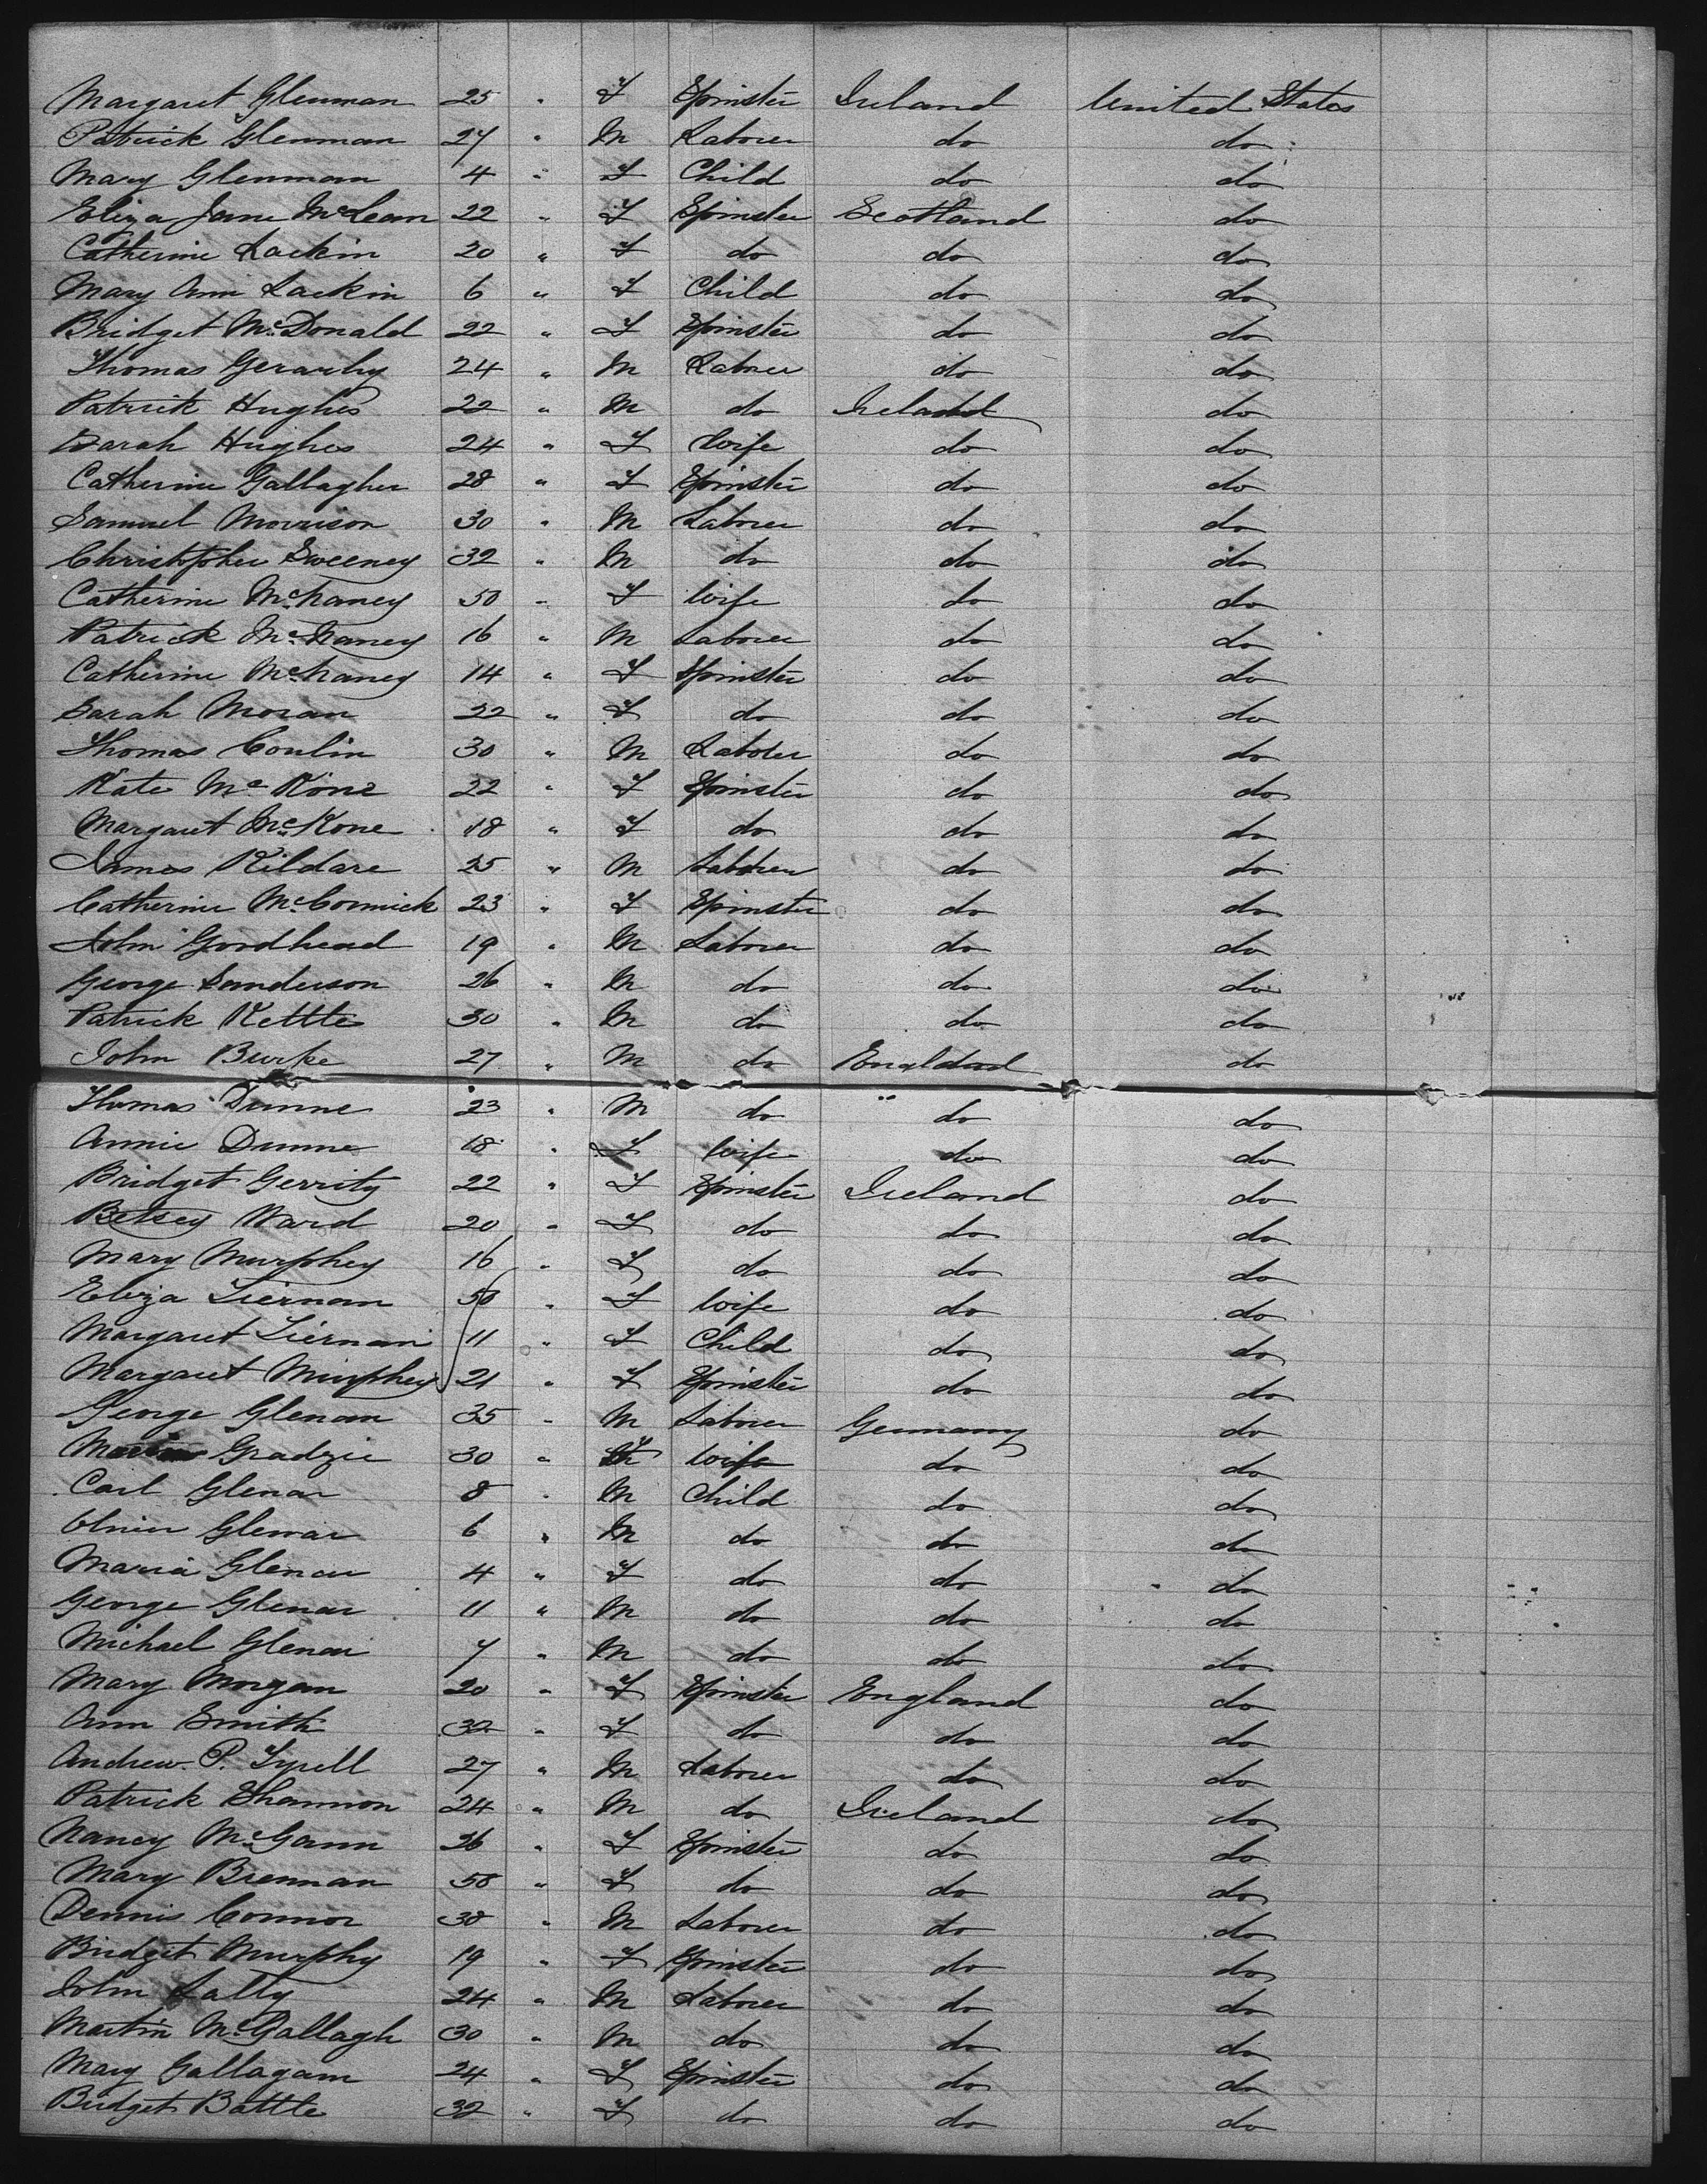 Margaret Glenman 25 " F Spinster Ireland United States
Patrick Glenman 27 " M Laborer do do
Mary Glenman 4 " F Child do do
Eliza Jane McLean 22 " F Spinster Scotland do
Catherine Lackin 20 " F do do do
Mary Ann Lackin 6 " F Child do do
Bridget McDonald 22 " F Spinster do do
Thomas Gerarhy 24 " M Laborer do do
Patrick Hughes 22 " M do Ireland do
Sarah Hughes 24 " F Wife do do
Catherine Gallagher 28 " F Spinster do do
Samuel Morrison 30 " M Laborer do do
Christopher Sweeney 32 " M do do do
Catherine McNaney 50 " F Wife do do
Patrick McNaney 16 " M Laborer do do
Catherine McNaney 14 " F Spinster do do
Sarah Moran 22 " F do do do
Thomas Conlin 30 " M Laborer do do
Kate McKone 22 " F Spinster do do
Margaret McKone 18 " F do do do
James Kildare 25 " M Laborer do do
Catherine McCormick 23 " F Spinster do do
John Goodhead 19 " M Laborer do do
George Sanderson 26 " M do do do
Patrick Kettle 30 " M do do do
John Burke 27 " M do England do
Thomas Dunne 23 " M do do do
Annie Dunne 18 " F Wife do do
Bridget Gerrity 22 " F Spinster Ireland do
Betsey Ward 20 " F do do do
Mary Murphey 16 " F do do do
Eliza Tiernan 50 " F Wife do do
Margaret Tiernan 11 " F Child do do
Margaret Murphey 21 " F Spinster do do
George Glenan 35 " M Laborer Germany do
Gradzie 30 " F Wife do do
Carl Glenar 8 " M Child do do
Glenar 6 " M do do do
Maria Glenar 4 " F do do do
George Glenar 11 " M do do do
Michael Glenar 7 " M do do do
Mary Morgan 20 " F Spinster England do
Ann Smith 32 " F do do do
Andrew P. Tyrell 27 " M Laborer do do
Patrick Shannon 24 " M do Ireland do
Nancy McGann 26 " F Spinster do do
Mary Brennan 58 " F do do do
Dennis Connor 38 " M Laborer do do
Bridget Murphy 19 " F Spinster do do
John Lally 24 " M Laborer do do
Martin McGallagh 30 " M do do do
Mary Gallagam 24 " F Spinster do do
Bridget Battle 32 " F do do do